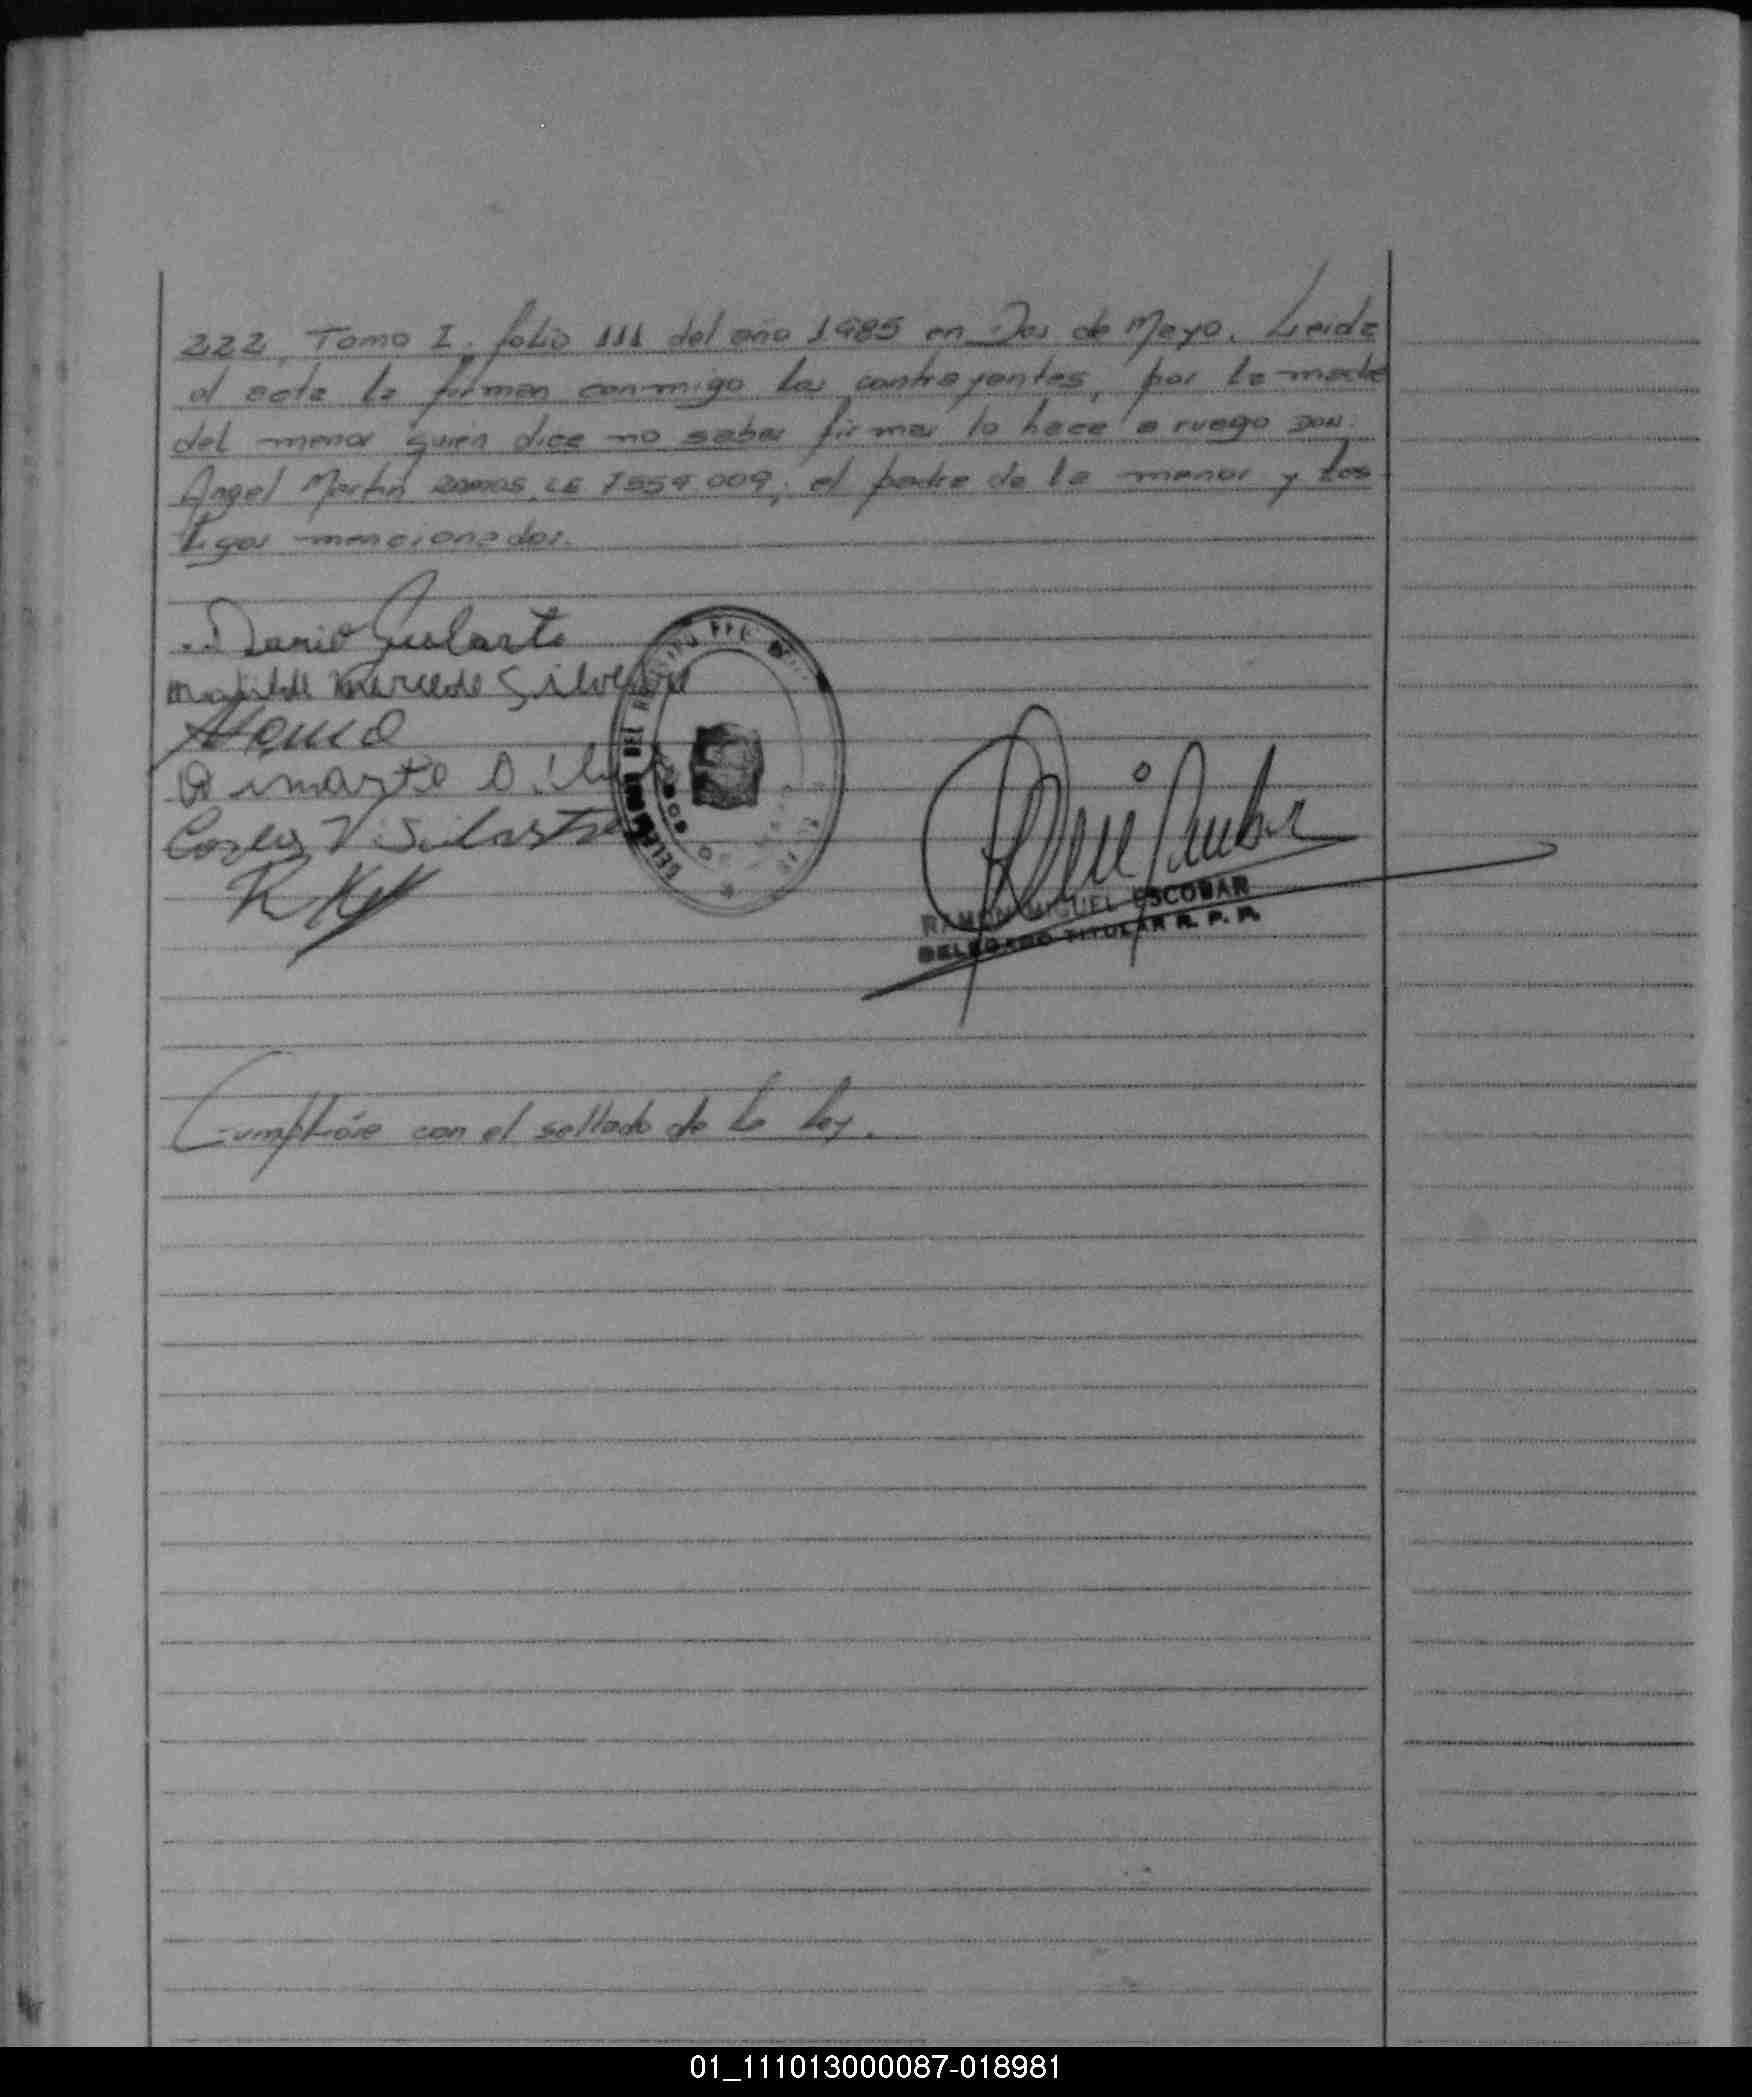 222, Tomo I. folio 111 del año 1985 en Dos de Mayo. Leida
el acta la firman conmigo los contrayentes, por la madre
del menor quien dice no saber firmar lo hace a ruego DON
Angel Martin RAMOS, LE 7554.009, el padre de la menor y tes
tigos mencionados.
Dario Gularte
Matilde Mercede Silve
Ramon
Carlos V Silastre
RAMON MIGUEL ESCOBAR
DELEGADO TITULAR R. P. P.
Cumplióse con el sellado de la ley.
01_111013000087-018981